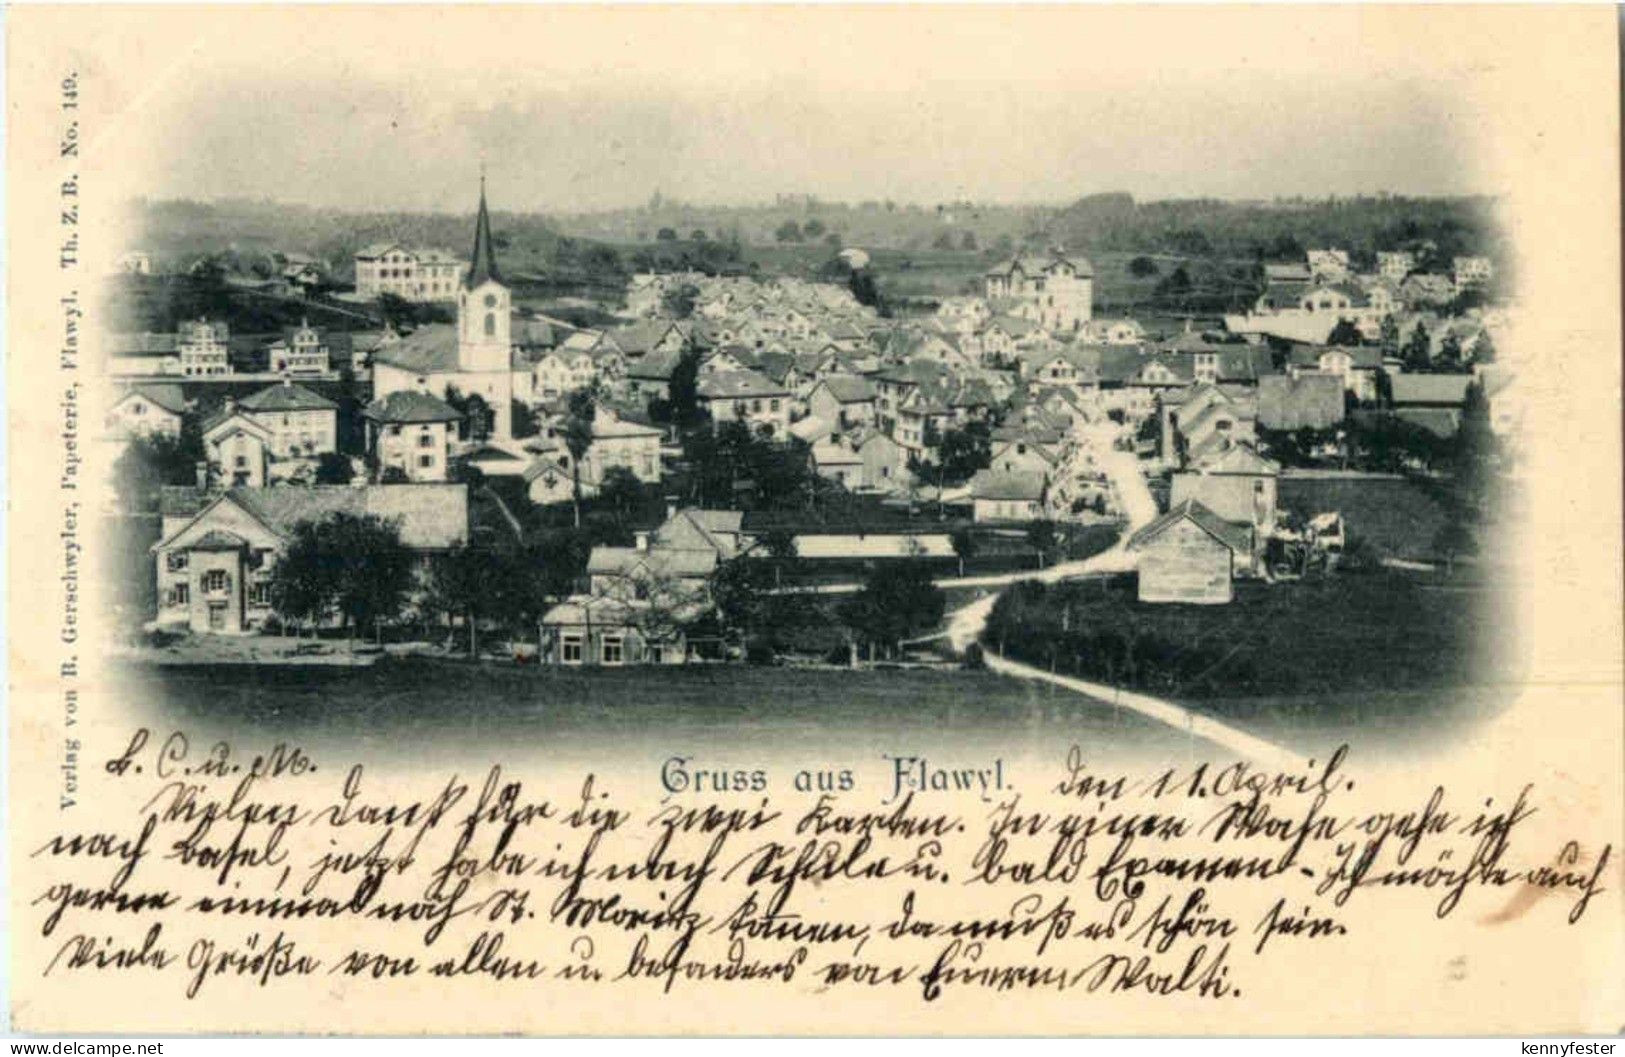 Verlag von R. Gerschwyler, Papeterie, Flawyl. Th. Z. B. No. 149.
Gruss aus Flawyl.
den 11. April.
b. C. u. M.
Vielen Dank für die zwei Karten. In einer Woche gehe ich
nach Basel, jetzt habe ich noch Schule u. bald Examen - Ich möchte auch
gerne einmal nach St. Moritz kommen, da muß es schön sein.
Viele Grüße von allen u. besonders von Euerm Walti.
kennyfester